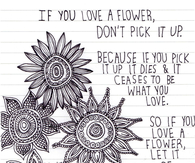 IF YOU LOVE A FLOWER,
DON'T PICK IT UP.
BECAUSE IF YOU PICK
IT UP IT DIES & IT
CEASES TO BE
WHAT YOU
LOVE.
SO IF YOU
LOVE A
FLOWER,
LET IT